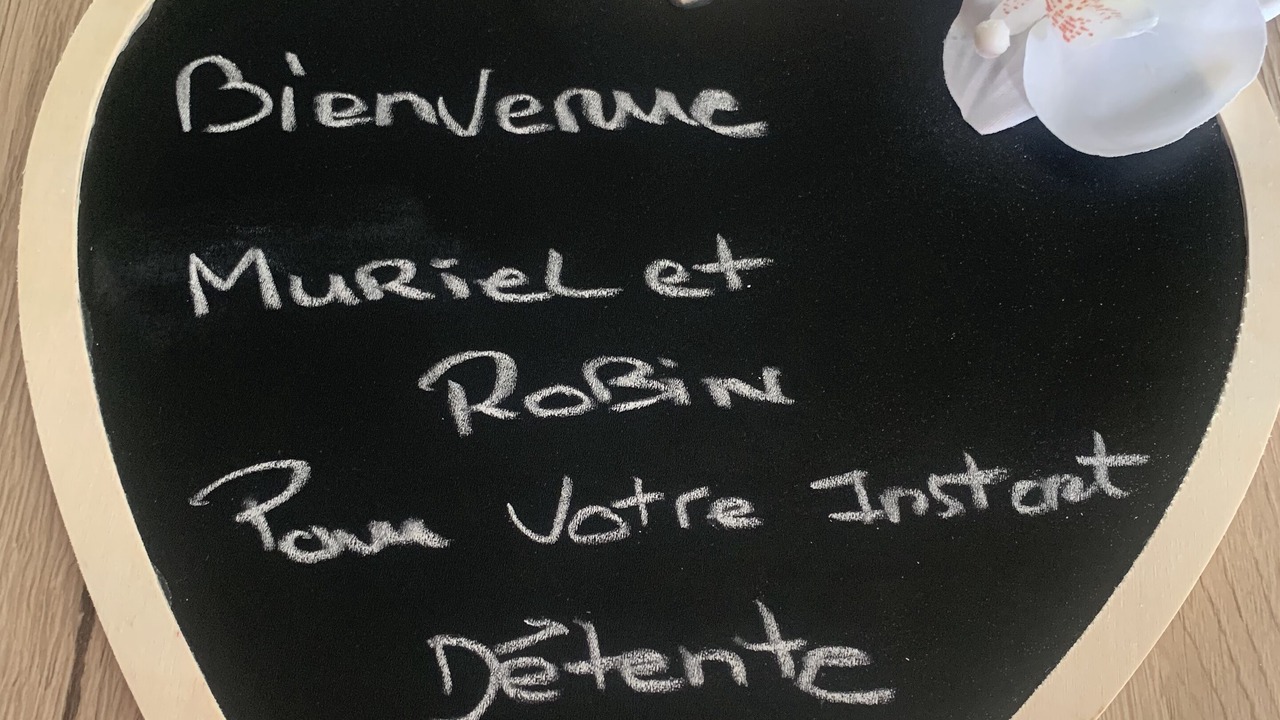 Bienvenue
Muriel et
Robin
Pour Votre Instant
Détente